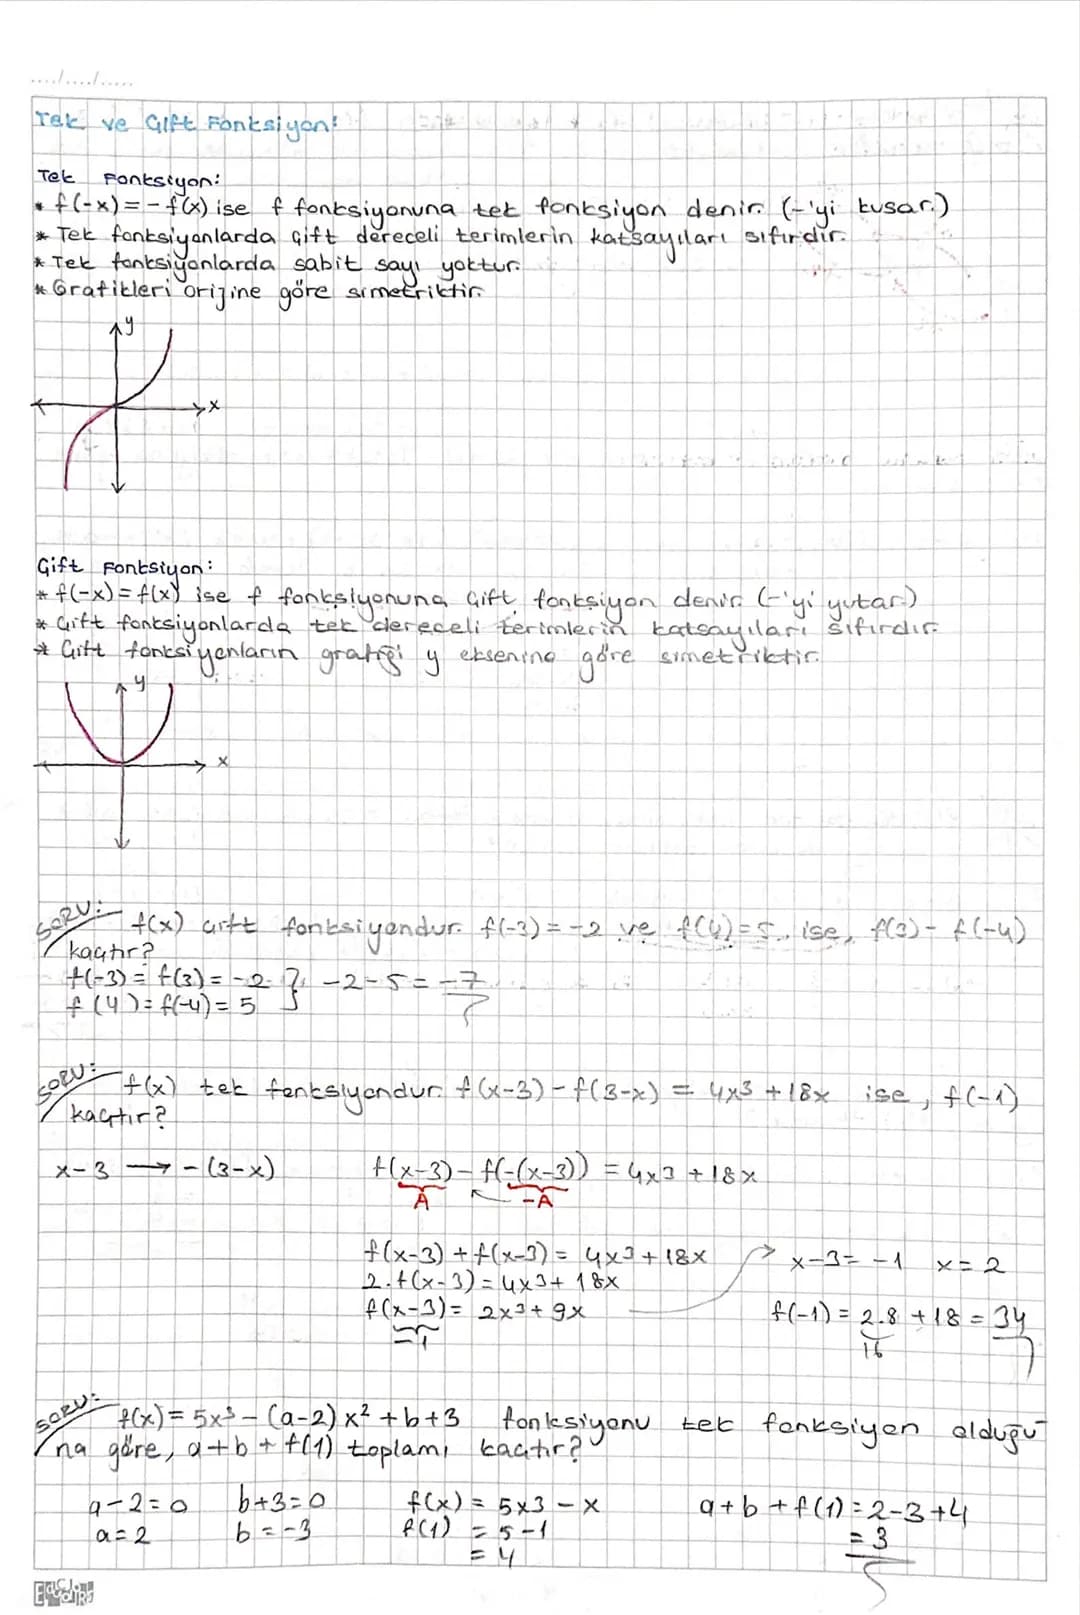 Tek ve Çift Fonksiyon:
Tek Fonksiyon:
* f(-x) = -f(x) ise f fonksiyonuna tek fonksiyon denir. (-'yi kusar.)
* Tek fonksiyonlarda çift dereceli terimlerin katsayıları sıfırdır.
* Tek fonksiyonlarda sabit sayı yoktur.
* Grafikleri orijine göre simetriktir.
y
x
Çift Fonksiyon:
* f(-x) = f(x) ise f fonksiyonuna çift fonksiyon denir. (-'yi yutar.)
* Çift fonksiyonlarda tek dereceli terimlerin katsayıları sıfırdır.
* Çift fonksiyonların grafiği y eksenine göre simetriktir.
y
x
SORU: f(x) çift fonksiyondur. f(-3) = -2 ve f(4) = 5 ise, f(3) - f(-4)
kaçtır?
f(-3) = f(3) = -2 } -2-5 = -7
f(4) = f(-4) = 5
SORU: f(x) tek fonksiyondur. f(x-3) - f(3-x) = 4x³ + 18x ise, f(-1)
kaçtır?
x-3 → -(3-x) f(x-3) - f(-(x-3)) = 4x³ + 18x
A -A
f(x-3) + f(x-3) = 4x³ + 18x x-3 = -1 x = 2
2.f(x-3) = 4x³ + 18x
f(x-3) = 2x³ + 9x f(-1) = 2.8 + 18 = 34
-1 16
SORU: f(x) = 5x³ - (a-2)x² + b+3 fonksiyonu tek fonksiyon olduğu
na göre, a+b+f(1) toplamı kaçtır?
a-2=0 b+3=0 f(x) = 5x3 - x a+b+f(1) = 2-3+4
a=2 b=-3 f(1) = 5-1 = 3
= 4